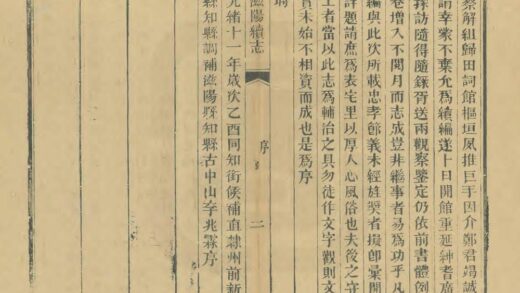 察解組歸田詞館樞垣夙推巨手因介鄭君竭誠
請幸蒙不棄允爲續編遂十日開館重延紳耆廣
採訪隨得隨錄胥送兩觀察鑒定仍依前書體例
卷增入不閱月而志成豈非繼事者易爲功乎凡
編與此次所載忠孝節義未經旌奬者擬卽彙開
詳題請庶爲表宅里以厚人心風俗也夫後之守
土者當以此志爲輔治之具勿徒作文字觀則文
未始不相資而成也是爲序
滋陽續志 序 二
光緒十一年歲次乙酉同知銜候補直隸州前新
縣知縣調補滋陽縣知縣古中山李兆霖序